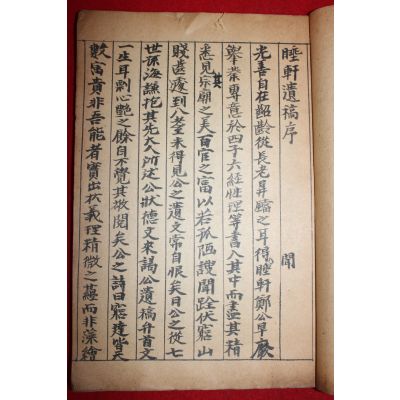 睡軒遺稿序
光善自在齠齡從長老昇牆之耳得聞睡軒鄭公早廢
擧業專意於四子六経性理等書入其中而盡其精
悉見其宗廟之美百官之富以若孤陋謏聞跧伏窮山
賤齒癃到八耋未得見公之遺文常自恨矣日公之從七
世孫海謙抱其先大人所述公狀德文來謁公遺稿弁首文
一生耳剽心艶之餘自不覺其敬閱矣公之詩曰窮達皆天
數富貴非吾能者實出於義理精微之蘊而非藻繪